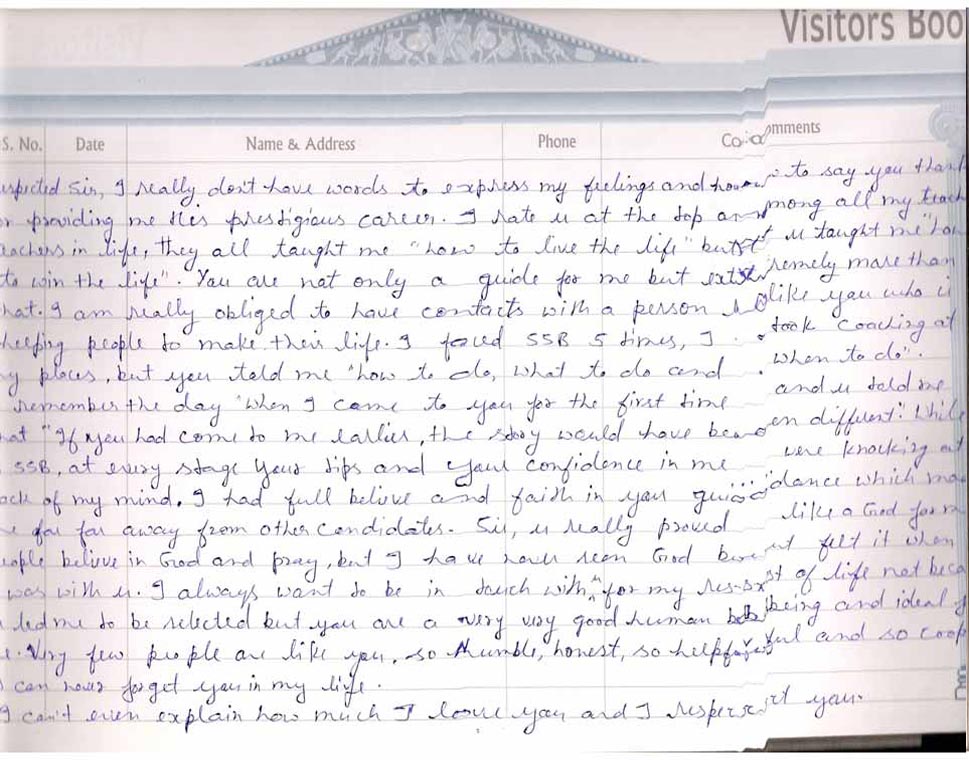 Visitors Boo
S. No. Date Name & Address Phone Comments
espected Sir, I really don't have words to express my feelings and how to say you thank
or providing me this prestigious career. I rate u at the top among all my teach
eachers in life, they all taught me "how to live the life" but u taught me "how
to win the life". You are not only a guide for me but extremely more than
hat. I am really obliged to have contacts with a person like you who is
helping people to make their life. I faced SSB 5 times, I took coaching at
ny places, but you told me "how to do, what to do and when to do".
remember the day when I came to you for the first time and u told me
hat "If you had come to me earlier, the story would have been different." While
SSB, at every stage your tips and your confidence in me were knocking at
ack of my mind. I had full believe and faith in your guidance which mad
e far far away from other candidates. Sir, u really proved like a God for m
eople believe in God and pray, but I have never seen God but felt it when
was with u. I always want to be in touch with u for my rest of life not beca
led me to be selected but you are a very very good human being and ideal f
e. Very few people are like you, so humble, honest, so helpful and so coop
I can never forget you in my life.
I can't even explain how much I love you and I respect you.